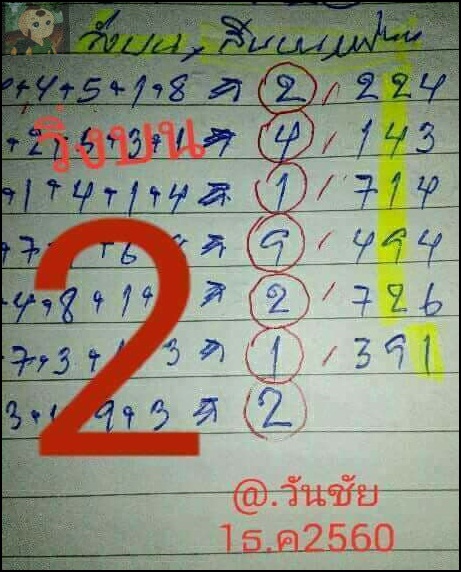 วิ่งบน, สิบบน
+4+5+1+8 => 2, 224
4, 143
วิ่งบน
+1+4+1+4 => 1, 714
9, 494
2
+4+8+1+ => 2, 726
7+3+ 3 => 1, 391
3+1 9+3 => 2
@.วันชัย
1ธ.ค2560